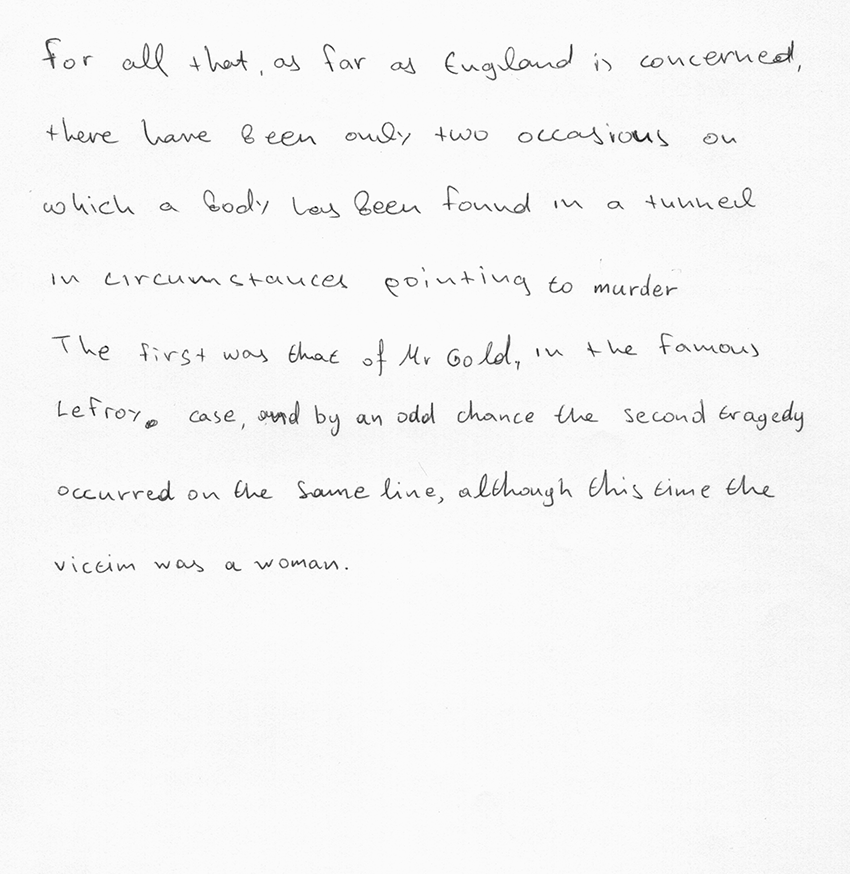 For all that, as far as England is concerned,
there have been only two occasions on
which a body has been found in a tunnel
in circumstances pointing to murder
The first was that of Mr Gold, in the famous
Lefroy. case, and by an odd chance the second tragedy
occurred on the same line, although this time the
victim was a woman.